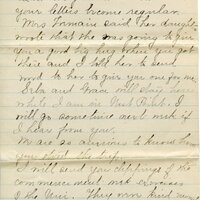 your letters become regular.
Mrs Inmaire said her daughter
wrote that she was going to give
you a good big hug when you got
there and I told her to send
word to her to give you one for me.
Erla and Grace will stay here
while I am in
will go sometime next week if
I hear from you.
We are so anxious to know how
you stood the trip.
I will send you clippings of the
commencement week exercises
of the Uni. They were kind